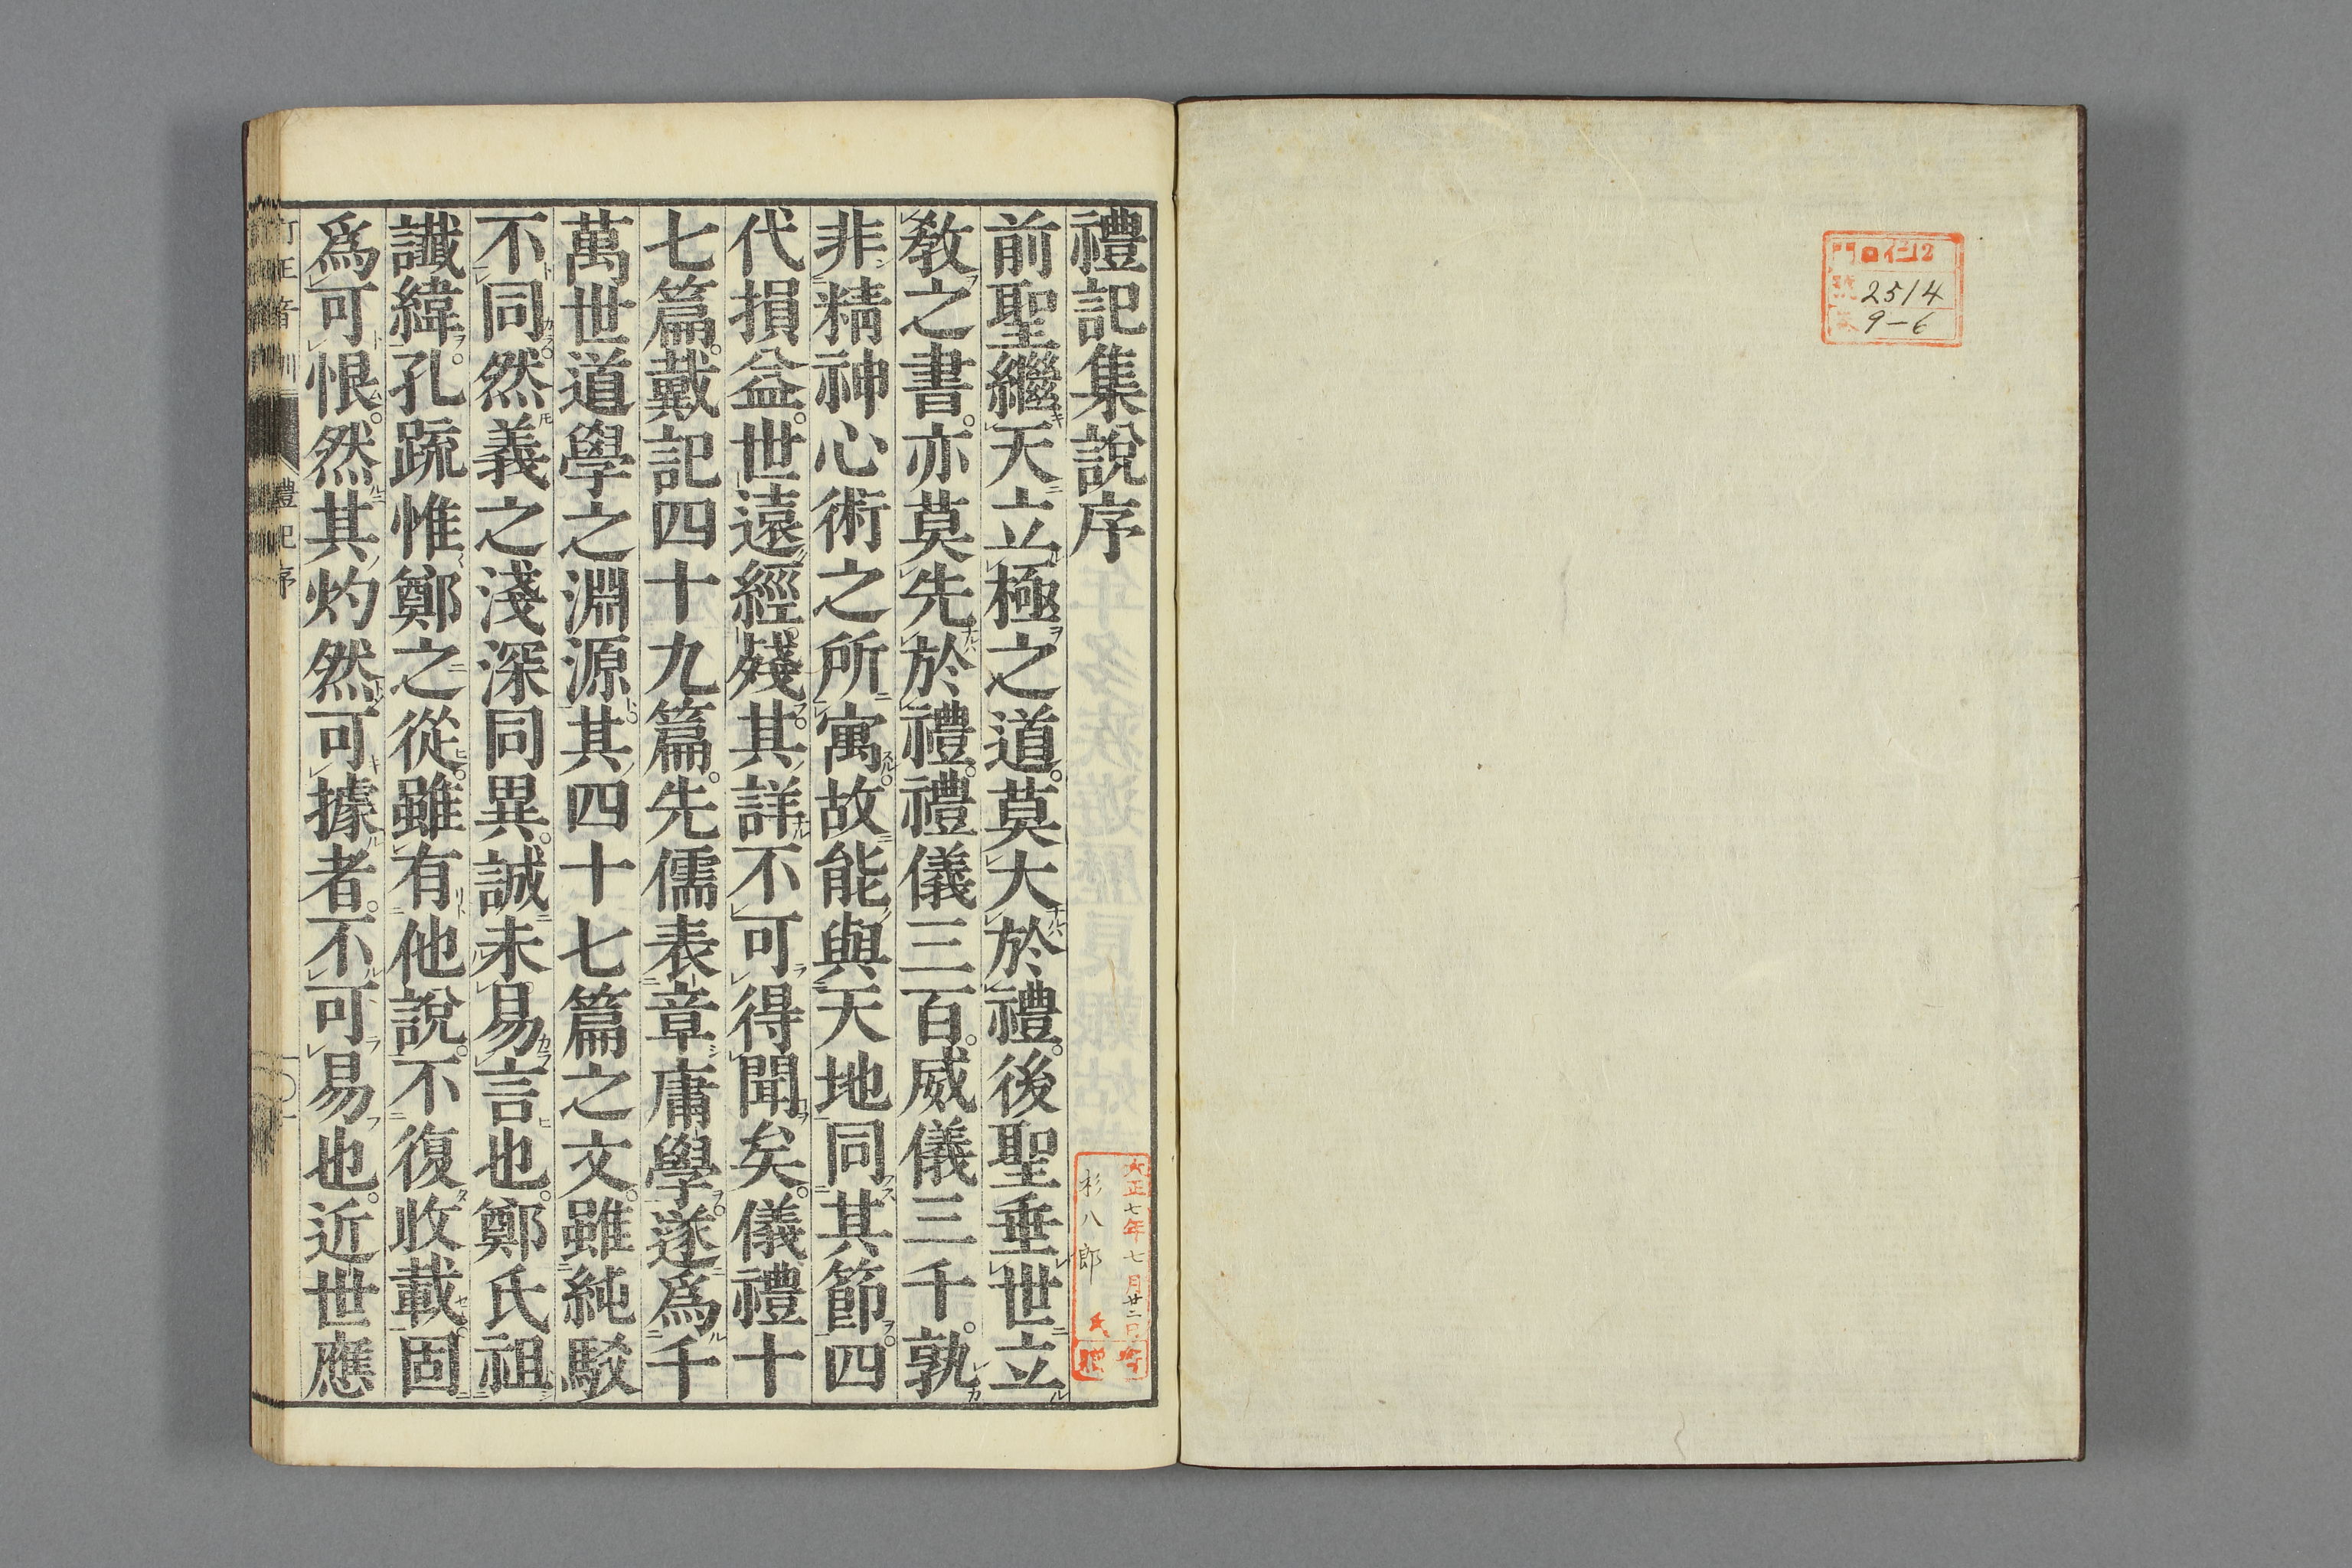 門 ロ 仁12
號 2514
9-6
禮記集說序
前聖繼天立極之道莫大於禮後聖垂世立
敎之書亦莫先於禮禮儀三百威儀三千孰
非精神心術之所寓故能與天地同其節四
代損益世遠經殘其詳不可得聞矣儀禮十
七篇戴記四十九篇先儒表章庸學遂爲千
萬世道學之淵源其四十七篇之文雖純駁
不同然義之淺深同異誠未易言也鄭氏祖
讖緯孔疏惟鄭之從雖有他說不復收載固
爲可恨然其灼然可據者不可易也近世應
大正七年七月廿二日寄
杉八郎氏贈
訂正音訓
禮記序